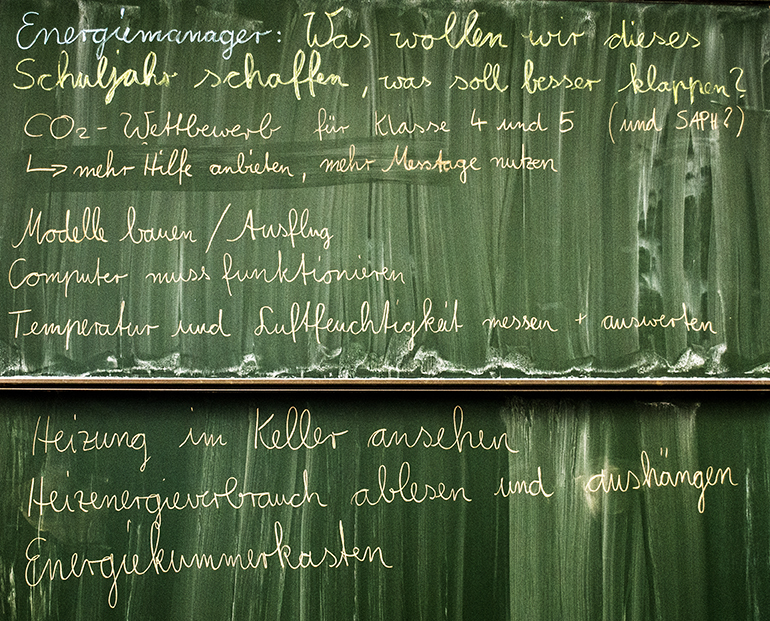 Energiemanager: Was wollen wir dieses
Schuljahr schaffen, was soll besser klappen?
CO2-Wettbewerb für Klasse 4 und 5 (und SAPH?)
↳ mehr Hilfe anbieten, mehr Messtage nutzen
Modelle bauen / Ausflug
Computer muss funktionieren
Temperatur und Luftfeuchtigkeit messen + auswerten
Heizung im Keller ansehen
Heizenergieverbrauch ablesen und aushängen
Energiekummerkasten